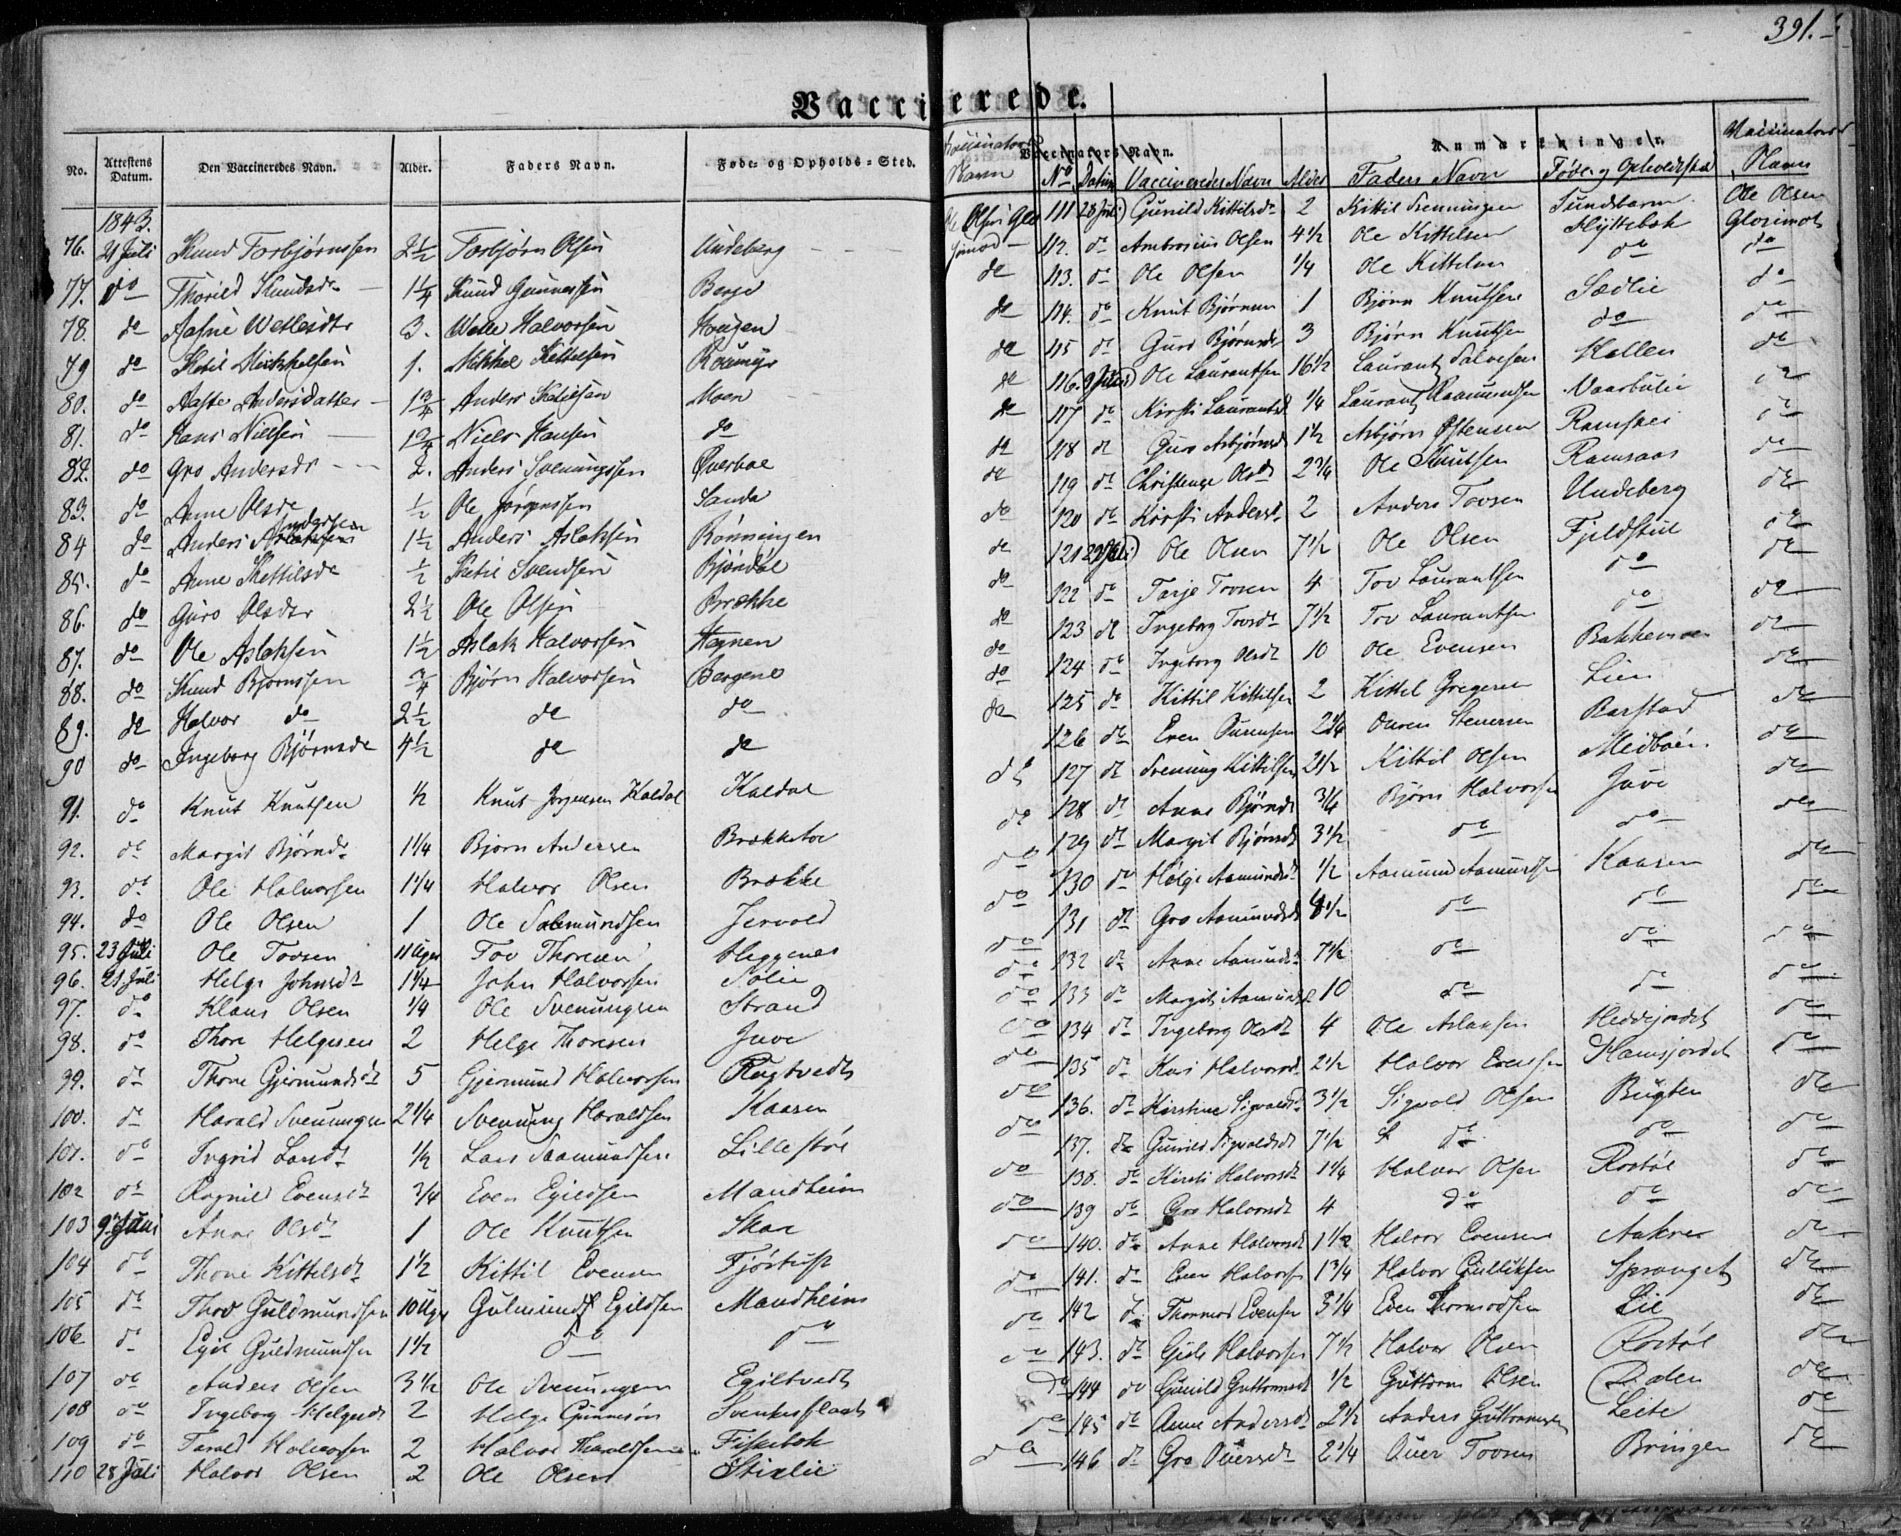 391.
Vaccinerede.
No. Attestens Datum. Den Vaccineredes Navn. Alder. Faders Navn. Føde- og Opholds-Sted.
1843.
76. 21 Juli Knud Torbjørnssen 2½ Torbjørn Olsen Undeberg
77. do Thorild Knudsdr 1¼ Knud Gunnersen Berge
78. do Aasne Wetlesdtr 3. Wetle Halvorsen Hougen
79 do Ketil Mikkelsen 1. Mikkel Kettelsen
80. do Aaste Andersdatter 1¾ Anders Ketilsen Moen
81. do Hans Nielsen Niels Hansen do
82. do Gro Andersdr 2. Anders Svenungssen Øverboe
83. do Anne Olsdr ½ Ole Jørgenssen Sanda
84 do Anders Anderssen 1½ Anders Aslaksen Rønningen
85. do Anne Kettilsdr ½ Ketil Svendsen Bjøndal
86. do Guro Olsdtr 2½ Ole Olsen Brække
87. do Ole Aslaksen 1½ Aslak Halvorsen Hegnen
88. do Knud Bjørnssen ¾ Bjørn Halvorsen Bergene
89. do Halvor do 2½ do do
90 do Ingeborg Bjørnsdr 4½ do do
91. do Knut Knutsen ½ Knut Jørgensen Kaldal Kaldal
92. do Margit Bjørnsdr 1¼ Bjørn Andersen Brækketoe
93. do Ole Halvorsen 1¼ Halvor Olsen Brække
94. do Ole Olsen 1 Ole Salmundsen Jervold
95. 23 Juli Ole Tovsen 11 Uger Tov Thoresen Heggenes
96. 21 Juli Helge Johnsdt 1¼ John Halvorsen Sølie
97. do Klaus Olsen ¼ Ole Svenungsen Strand
98. do Thore Helgesen 2 Helge Thoresen Juve
99. do Thone Gjermundsdt 5 Gjermund Halvorsen Rugtvedt
100. do Harald Svenungsen 2¼ Svenung Haraldsen Kaasen
101. do Ingrid Larsdt ½ Lars Saamundsen Lillestøl
102 do Ragnild Evensdt ¾ Even Egildsen Mandheim
103 9 Juni Anne Olsdt 1 Ole Knutsen Skar
104 do Thone Kittelsdt 1½ Kittil Evensen
105 do Thov Guldmundsen 10 Uger Gulmund Egildsen Mandheim
106. do Egil Guldmundsen 1½ do do
107 do Anders Olsen 3½ Ole Svenungsen Egiltvedt
108 do Ingeborg Helgesdt 2 Helge Gunnesøn
109 do Tarald Halvorsen 2 Halvor Tharaldsen Fiskebek
110 28 Juli Halvor Olsen 2 Ole Olsen Stivlie
Vaccinators Navn.
Anmærkninger.
Vaccinators Navn No Datum Vaccineredes Navn Alder Faders Navn Føde- og Opholdsstæd Vaccinators Navn
Ole Olsen 111 28 Juli Gunild Kittilsdr 2 Kittil Svenningsen Sundbarm Ole Olsen
112. do Ambrosius Olsen 4½ Ole Kittelsen Hyttebek Glosimot
do 113. do Ole Olsen ¼ Ole Kittelsen do do
do 114. do Knut Bjørnsen 1 Bjørn Knutsen Sædlie do
do 115 do Guro Bjørnsdr 3 Bjørn Knutsen do do
do 116. Ole Laurantsen 16½ Laurants Salvesen Hollen do
do 117 do Kirsti Laurantsd ¼ Laurants Raamundsen Vaarbulie do
do 118 do Guro Asbjørnsd 1½ Asbjørn Østensen do
do 119 do Christense Olsdt 2¾ Ole Knutsen Ramsaas do
do 120 do Kirsti Andersdt 2 Anders Tovsen Undeberg do
do 121 Ole Olsen 7½ Ole Olsen Fjeldstul do
do 122 do Tarje Tovsen 4 Tov Laurantsen do do
do 123 do Ingeborg Tovsdt 7½ Tov Laurantsen do do
do 124 do Ingeborg Olsdt 10 Ole Evensen Bakkemoen do
do 125 do Kittil Kittilsen 2 Kittil Gregersen Lien do
do 126 do Even 2¼ Stenersen Barstad do
do 127 do Svenung Kittilsen 2½ Kittil Olsen Midbøen do
do 128 do Anne Bjørnsdt ¾ Bjørn Halvorsen Juve do
do 129 do Margit Bjørnsdt 3½ do do do
do 130 do Helge Aamundsdt ½ Aamund Aamundsen Kaasen do
do 131 do Gro Aamundsdt 4½ do do do
do 132 do Anne Aamundsdt 7½ do do do
do 133 do Margit Aamundsd 10 do do do
do 134 do Ingeborg Olsdt 4 Ole Aslaksen Heddejordet do
do 135 do Kari Halvorsdt 2½ Halvor Evensen Hamsjordet do
do 136. do Kirstine Sigvaldsdt 3½ Sigvald Olsen Bugten do
do 137. do Gunild Sigvaldsdt 7½ do do do
do 138. do Kirsti Halvorsdt 1¼ Halvor Olsen Rostøl do
do 139 do Gro Halvorsdt 4 do do do
do 140. do Anne Halvorsdt 1½ Halvor Evensen Aaknes do
do 141. do Even Halvorsen 1¾ Halvor Gullikksen Spranget do
do 142 do Thormod Evensen 3¼ Even Thormodsen Lie do
do 143. do Gisle Halvorsen 7½ Halvor Olsen Rostøl do
do 144 do Gunild Guttormsdt ½ Guttorm Olsen Dalen do
do 145 do Anne Andersdt 2½ Anders Guttormsen Leite do
do 146 do Gro Oversdt 2¼ Over Tovsen Bringen do